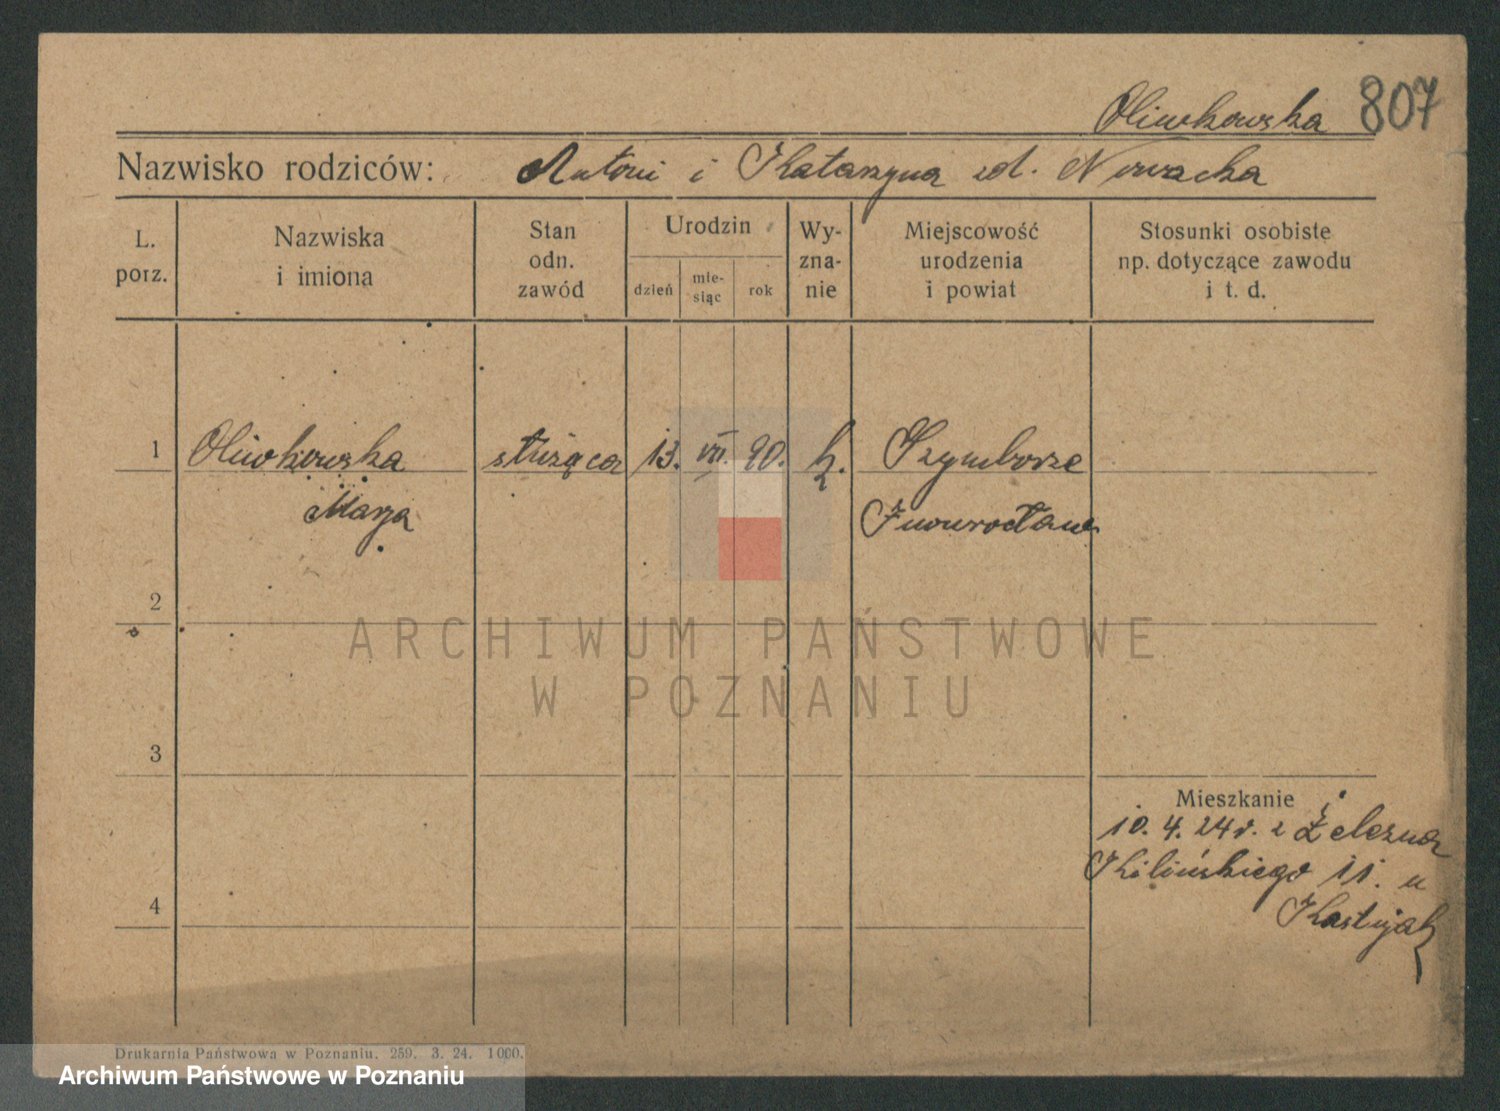 Oliwkowska 807
Nazwisko rodziców: Antoni i Katarzyna zd. Nowacka
L. porz.
Nazwiska i imiona
Stan odn. zawód
Urodzin
dzień
mie-siąc
rok
Wy-zna-nie
Miejscowość urodzenia i powiat
Stosunki osobiste np. dotyczące zawodu i t. d.
1 Oliwkowska służąca 13. VII. 90. k. Szymborze
Marja Inowrocław
2
3
4
Mieszkanie
10. 4. 24 r. z Żelezna
Kilińskiego 11. u
Kastyak
ARCHIWUM PAŃSTWOWE
W POZNANIU
Drukarnia Państwowa w Poznaniu. 259. 3. 24. 1000.
Archiwum Państwowe w Poznaniu